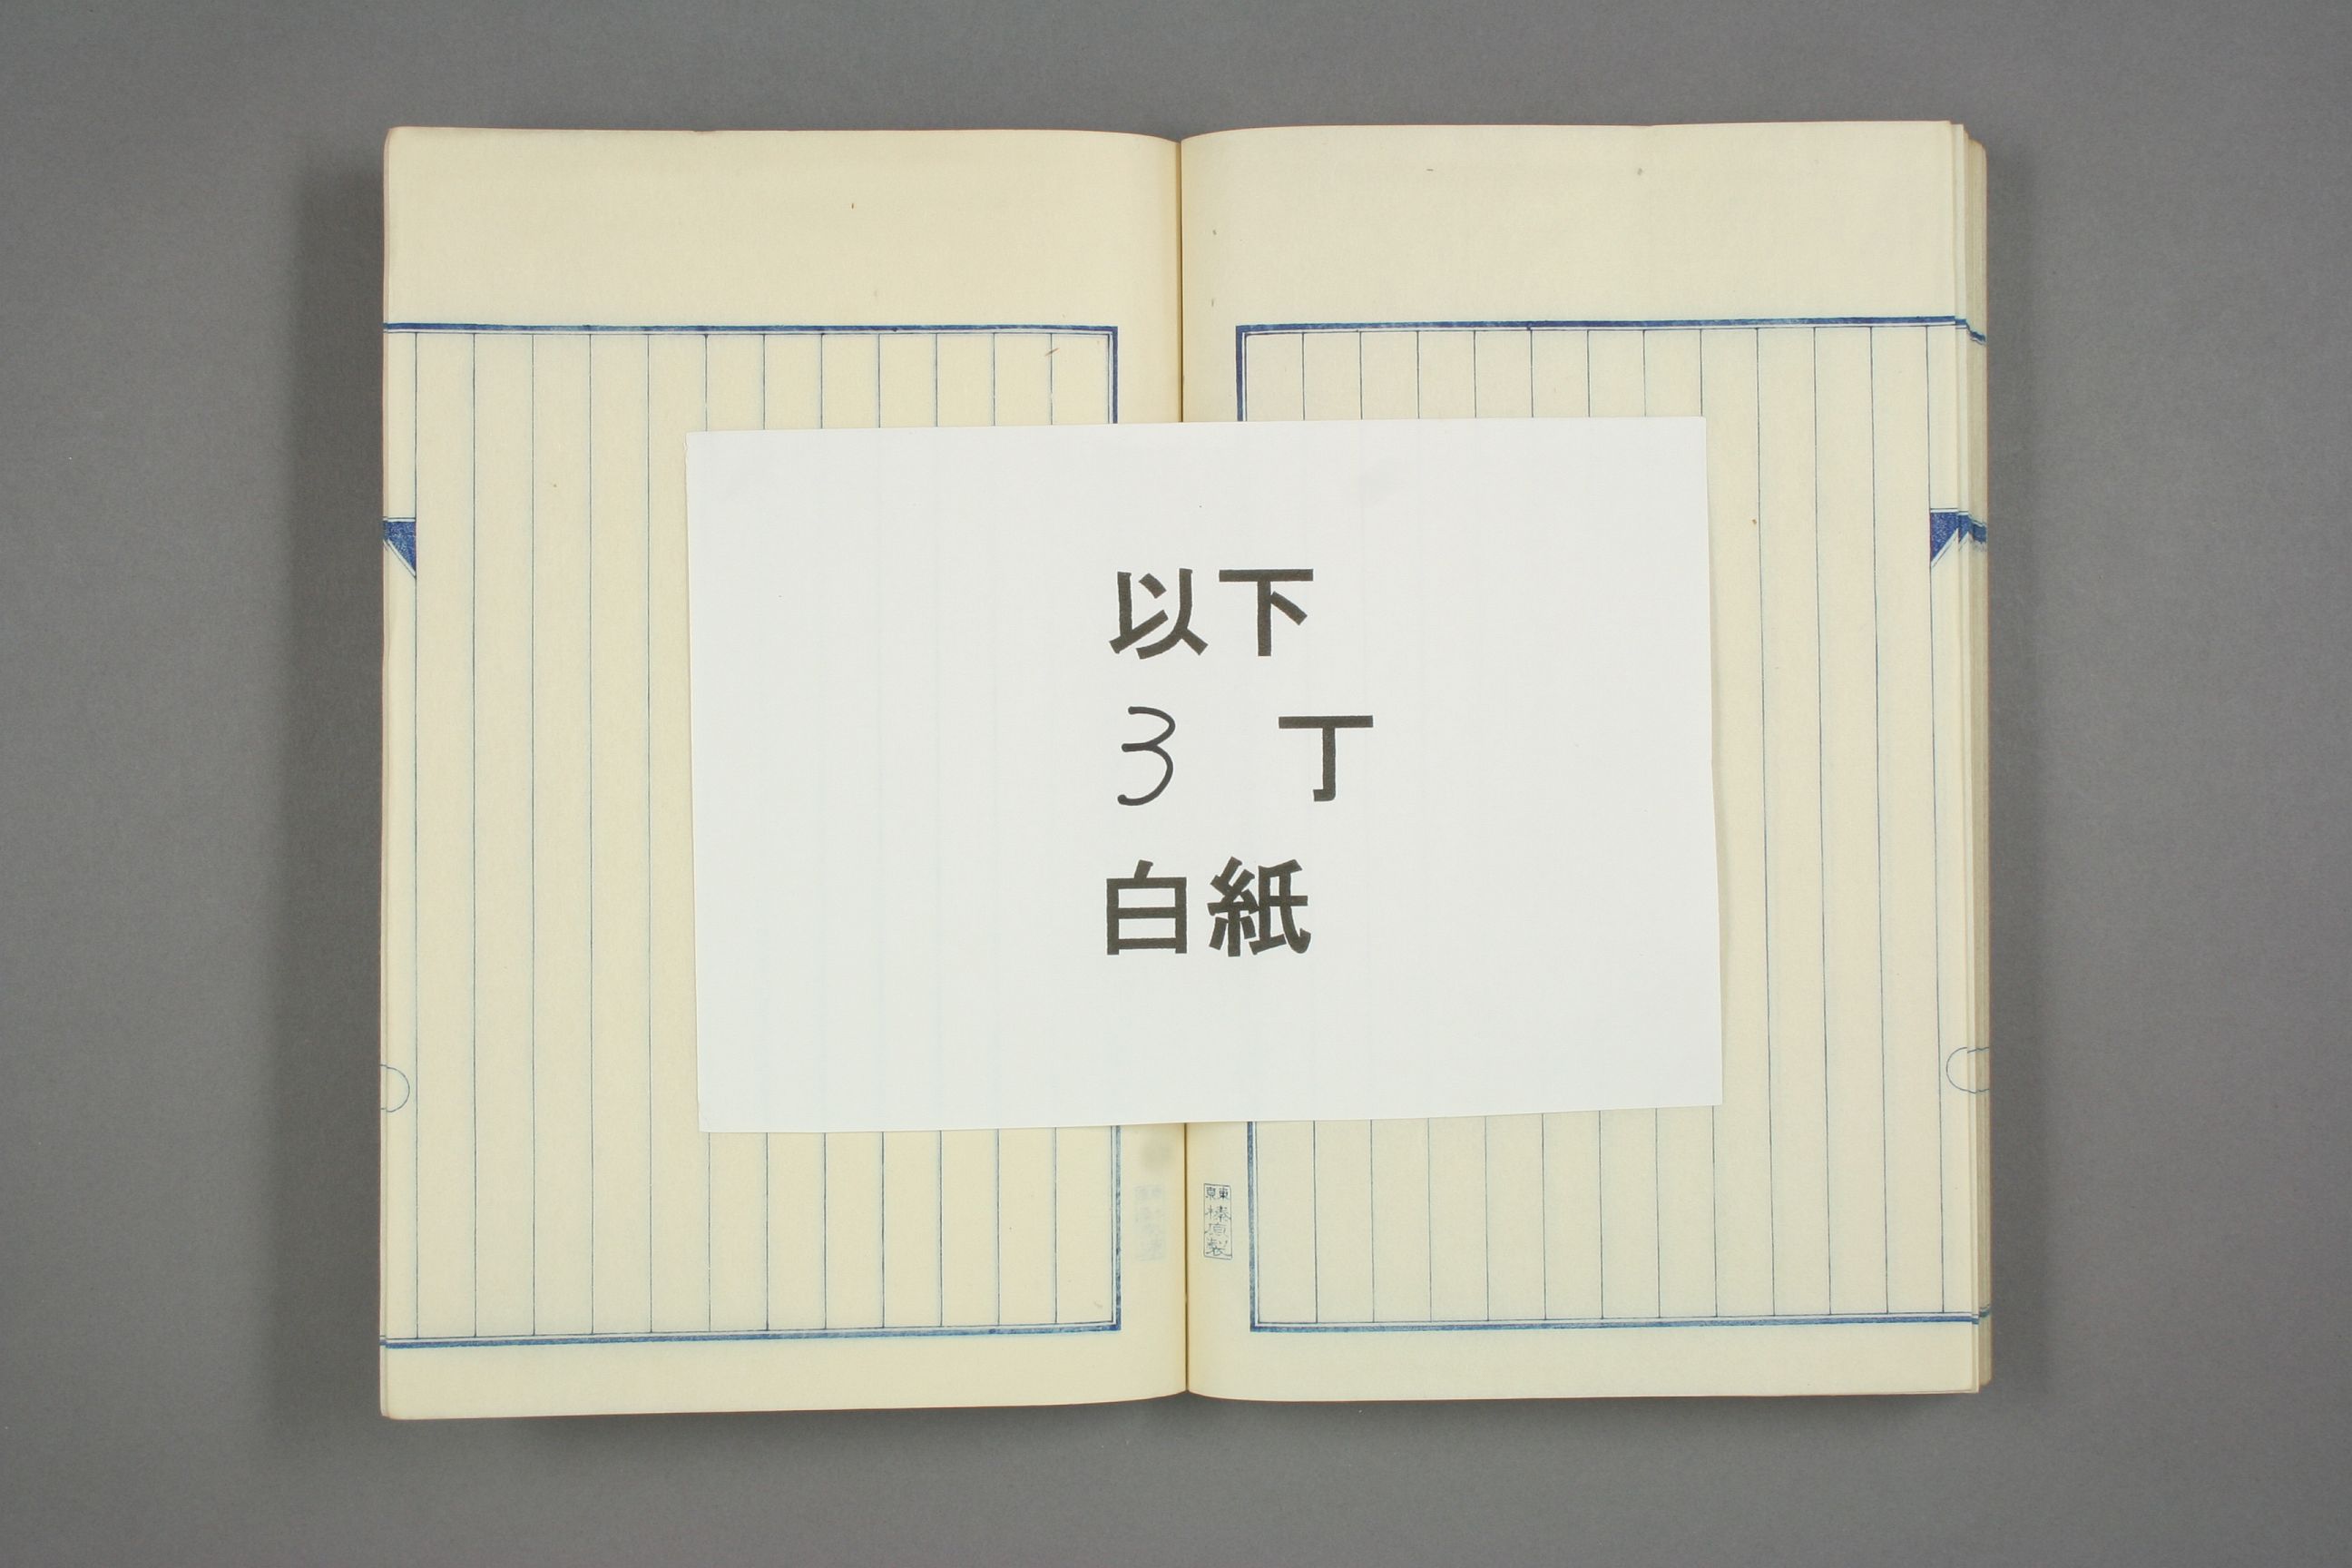 以下
3 丁
白紙
東京
榛原製